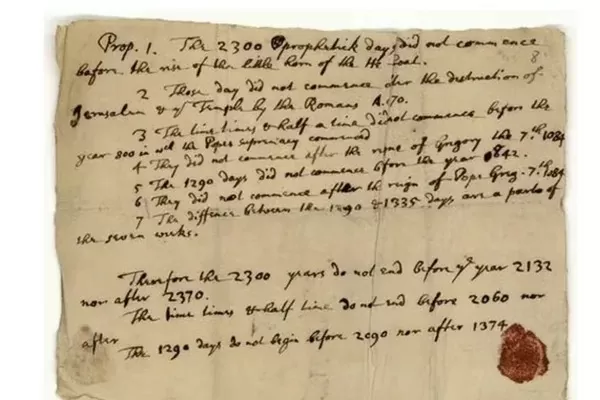 Prop. 1. The 2300 prophetick days did not commence
before the rise of the little horn of the He Goat.
2 Those day did not commence after the destruction of
Jerusalem & yᵉ Temple by the Romans A. 70.
3 The time times & half a time did not commence before the
year 800 in wᶜʰ the Popes supremacy commenced
4 They did not commence after the reigne of Gregory the 7.th 1084
5 The 1290 days did not commence before the year 842.
6 They did not commence after the reign of Pope Greg. 7.th 1084
7 The diffence between the 1290 & 1335 days are a parts of
the seven weeks.
Therefore the 2300 years do not end before yᵉ year 2132
nor after 2370.
The time times & half time do not end before 2060 nor
after
The 1290 days do not begin before 2090 nor after 1374
8